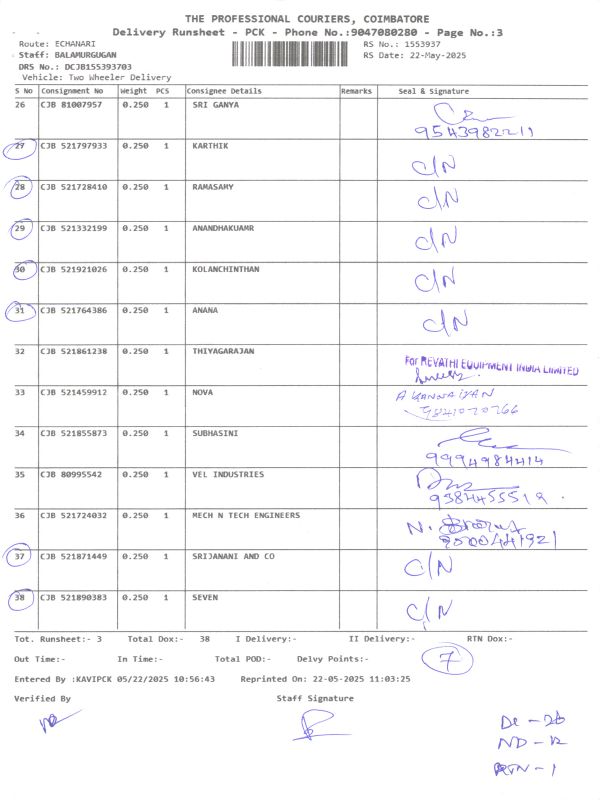 THE PROFESSIONAL COURIERS, COIMBATORE
Delivery Runsheet - PCK - Phone No.:9047080280 - Page No.:3
Route: ECHANARI RS No.: 1553937
Staff: BALAMURGUGAN RS Date: 22-May-2025
DRS No.: DCJB155393703
Vehicle: Two Wheeler Delivery
S No Consignment No Weight PCS Consignee Details Remarks Seal & Signature
26 CJB 81007957 0.250 1 SRI GANYA
9543982211
27 CJB 521797933 0.250 1 KARTHIK C/N
28 CJB 521728410 0.250 1 RAMASAMY C/N
29 CJB 521332199 0.250 1 ANANDHAKUAMR C/N
30 CJB 521921026 0.250 1 KOLANCHINTHAN C/N
31 CJB 521764386 0.250 1 ANANA C/N
32 CJB 521861238 0.250 1 THIYAGARAJAN For REVATHI EQUIPMENT INDIA LIMITED
33 CJB 521459912 0.250 1 NOVA A KANNAIYAN
34 CJB 521855873 0.250 1 SUBHASINI
9994984414
35 CJB 80995542 0.250 1 VEL INDUSTRIES
36 CJB 521724032 0.250 1 MECH N TECH ENGINEERS N.
37 CJB 521871449 0.250 1 SRIJANANI AND CO C/N
38 CJB 521890383 0.250 1 SEVEN C/N
Tot. Runsheet:- 3 Total Dox:- 38 I Delivery:- II Delivery:- RTN Dox:-
Out Time:- In Time:- Total POD:- Delvy Points:- 7
Entered By :KAVIPCK 05/22/2025 10:56:43 Reprinted On: 22-05-2025 11:03:25
Verified By Staff Signature
DL - 26
ND - 12
RTN - 1